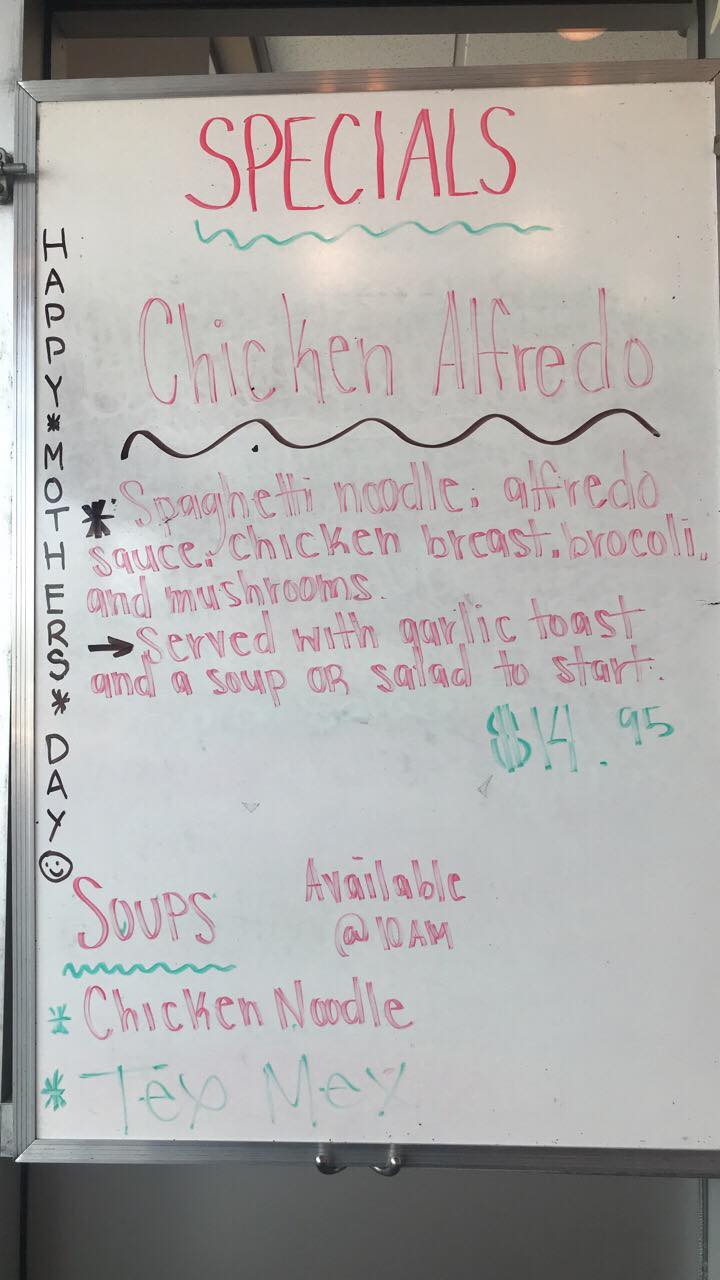 SPECIALS
HAPPY*MOTHERS*DAY☺
Chicken Alfredo
* Spaghetti noodle, alfredo
sauce, chicken breast, brocoli,
and mushrooms.
→ Served with garlic toast
and a soup OR salad to start.
$14.95
SOUPS
Available
@ 10AM
* Chicken Noodle
* Tex Mex